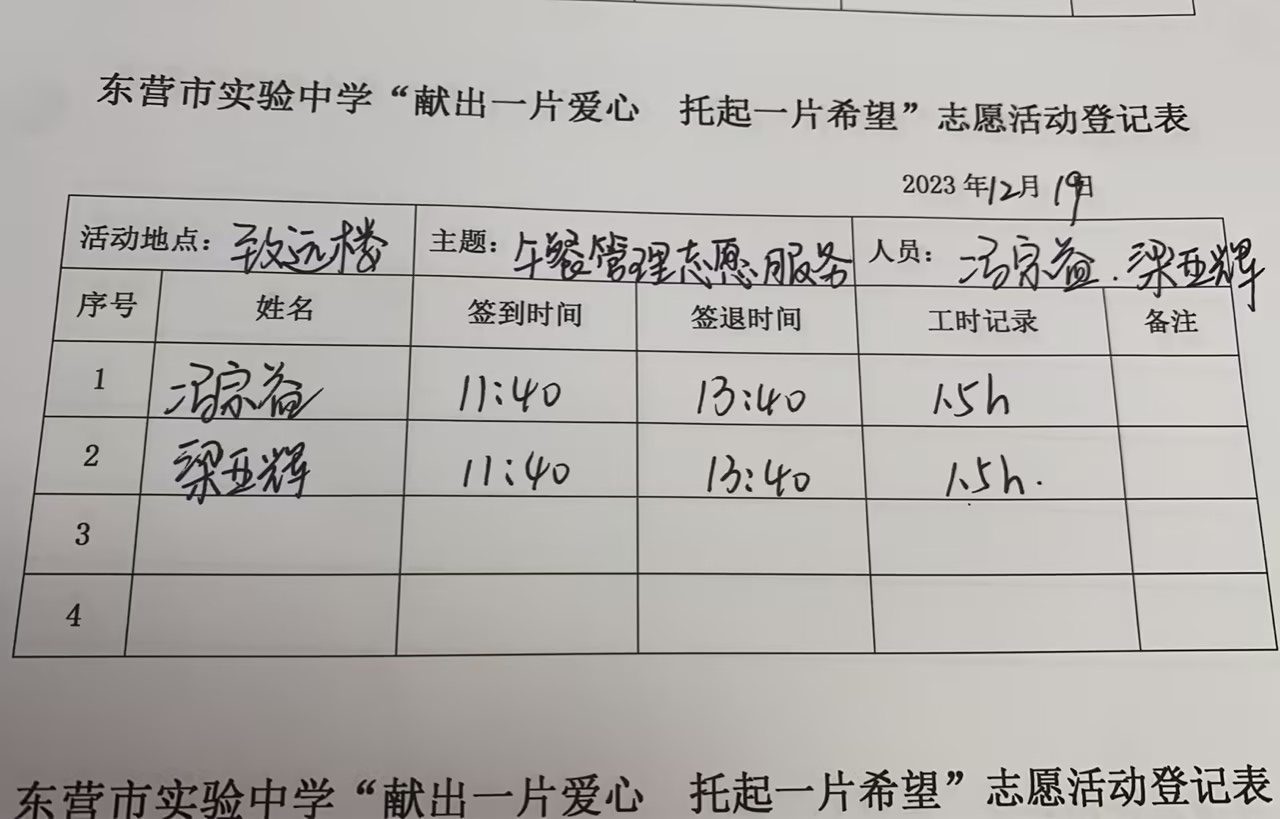 东营市实验中学“献出一片爱心 托起一片希望”志愿活动登记表
2023年12月19日
活动地点：致远楼 主题：午餐管理志愿服务 人员：冯宗益.梁亚辉
序号 姓名 签到时间 签退时间 工时记录 备注
1 冯宗益 11:40 13:40 1.5h
2 梁亚辉 11:40 13:40 1.5h.
3
4
东营市实验中学“献出一片爱心 托起一片希望”志愿活动登记表